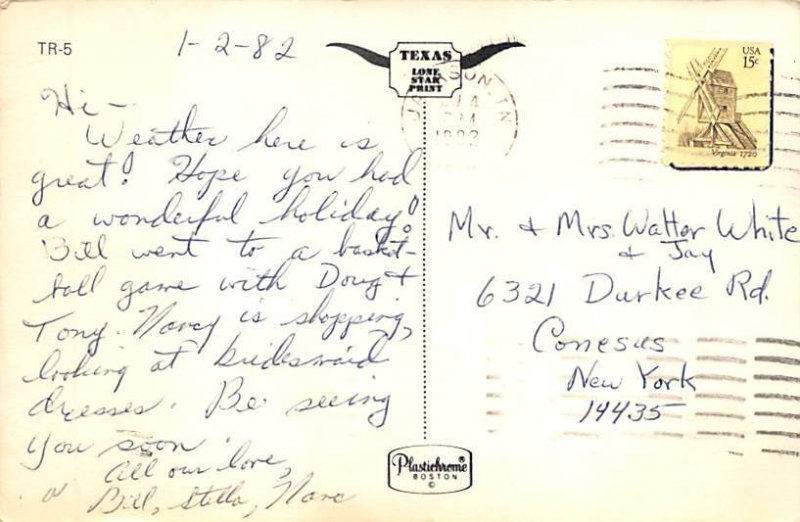 TR-5
1-2-82
TEXAS
LONE
STAR
PRINT
JACKSON, TN
USA
15c
Virginia 1720
Hi-
Weather here is
great! Hope you had
a wonderful holiday!
Bill went to a basket-
ball game with Doug &
Tony. Nancy is shopping,
looking at bridesmaid
dresses. Be seeing
you soon.
All our love,
Bill, Stella, Nanc
Mr. & Mrs. Walter White
& Jay
6321 Durkee Rd.
Conesus
New York
14435
Plastichrome®
BOSTON
©